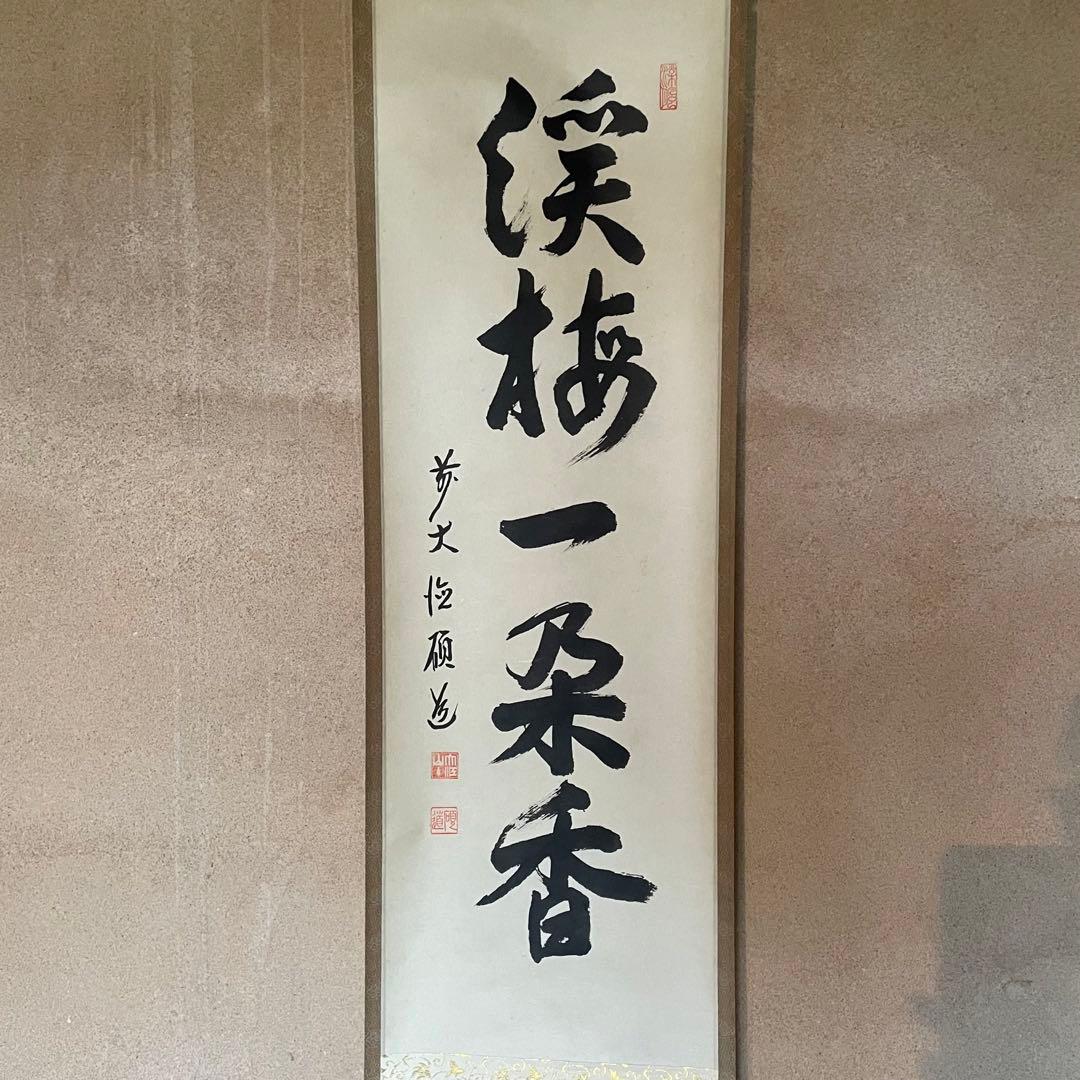 渓梅一朶香
前大徳碩道